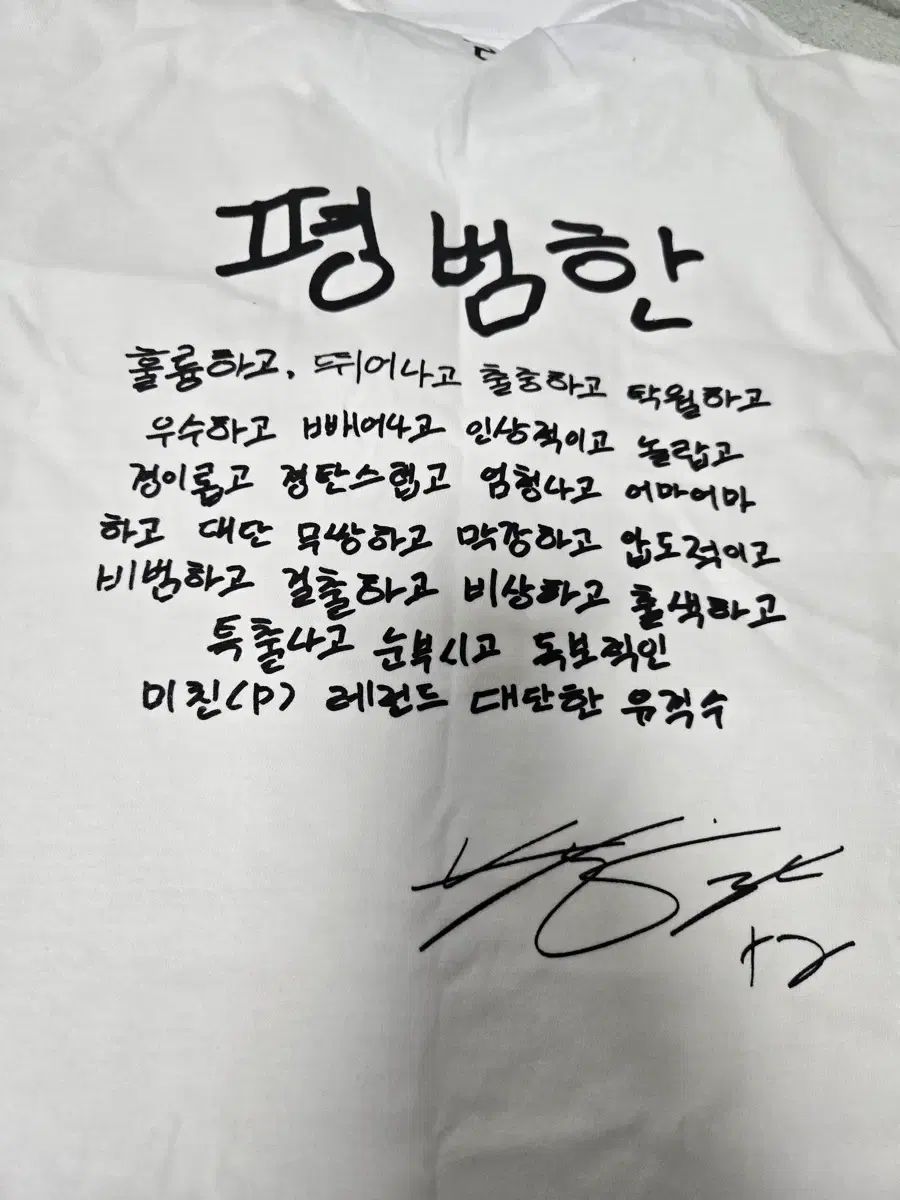 평범한
훌륭하고, 뛰어나고 출중하고 탁월하고
우수하고 빼어나고 인상적이고 놀랍고
경이롭고 경탄스럽고 엄청나고 어마어마
하고 대단 무쌍하고 막강하고 압도적이고
비범하고 걸출하고 비상하고 출색하고
특출나고 눈부시고 독보적인
미친(P) 레전드 대단한 유격수
12